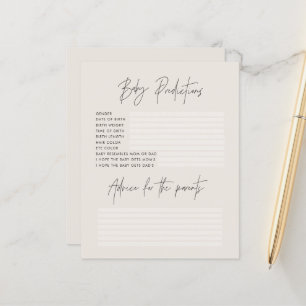 Baby Predictions
GENDER
DATE OF BIRTH
BIRTH WEIGHT
TIME OF BIRTH
BIRTH LENGTH
HAIR COLOR
EYE COLOR
BABY RESEMBLES MOM OR DAD
I HOPE THE BABY GETS MOM'S
I HOPE THE BABY GETS DAD'S
Advice for the parents